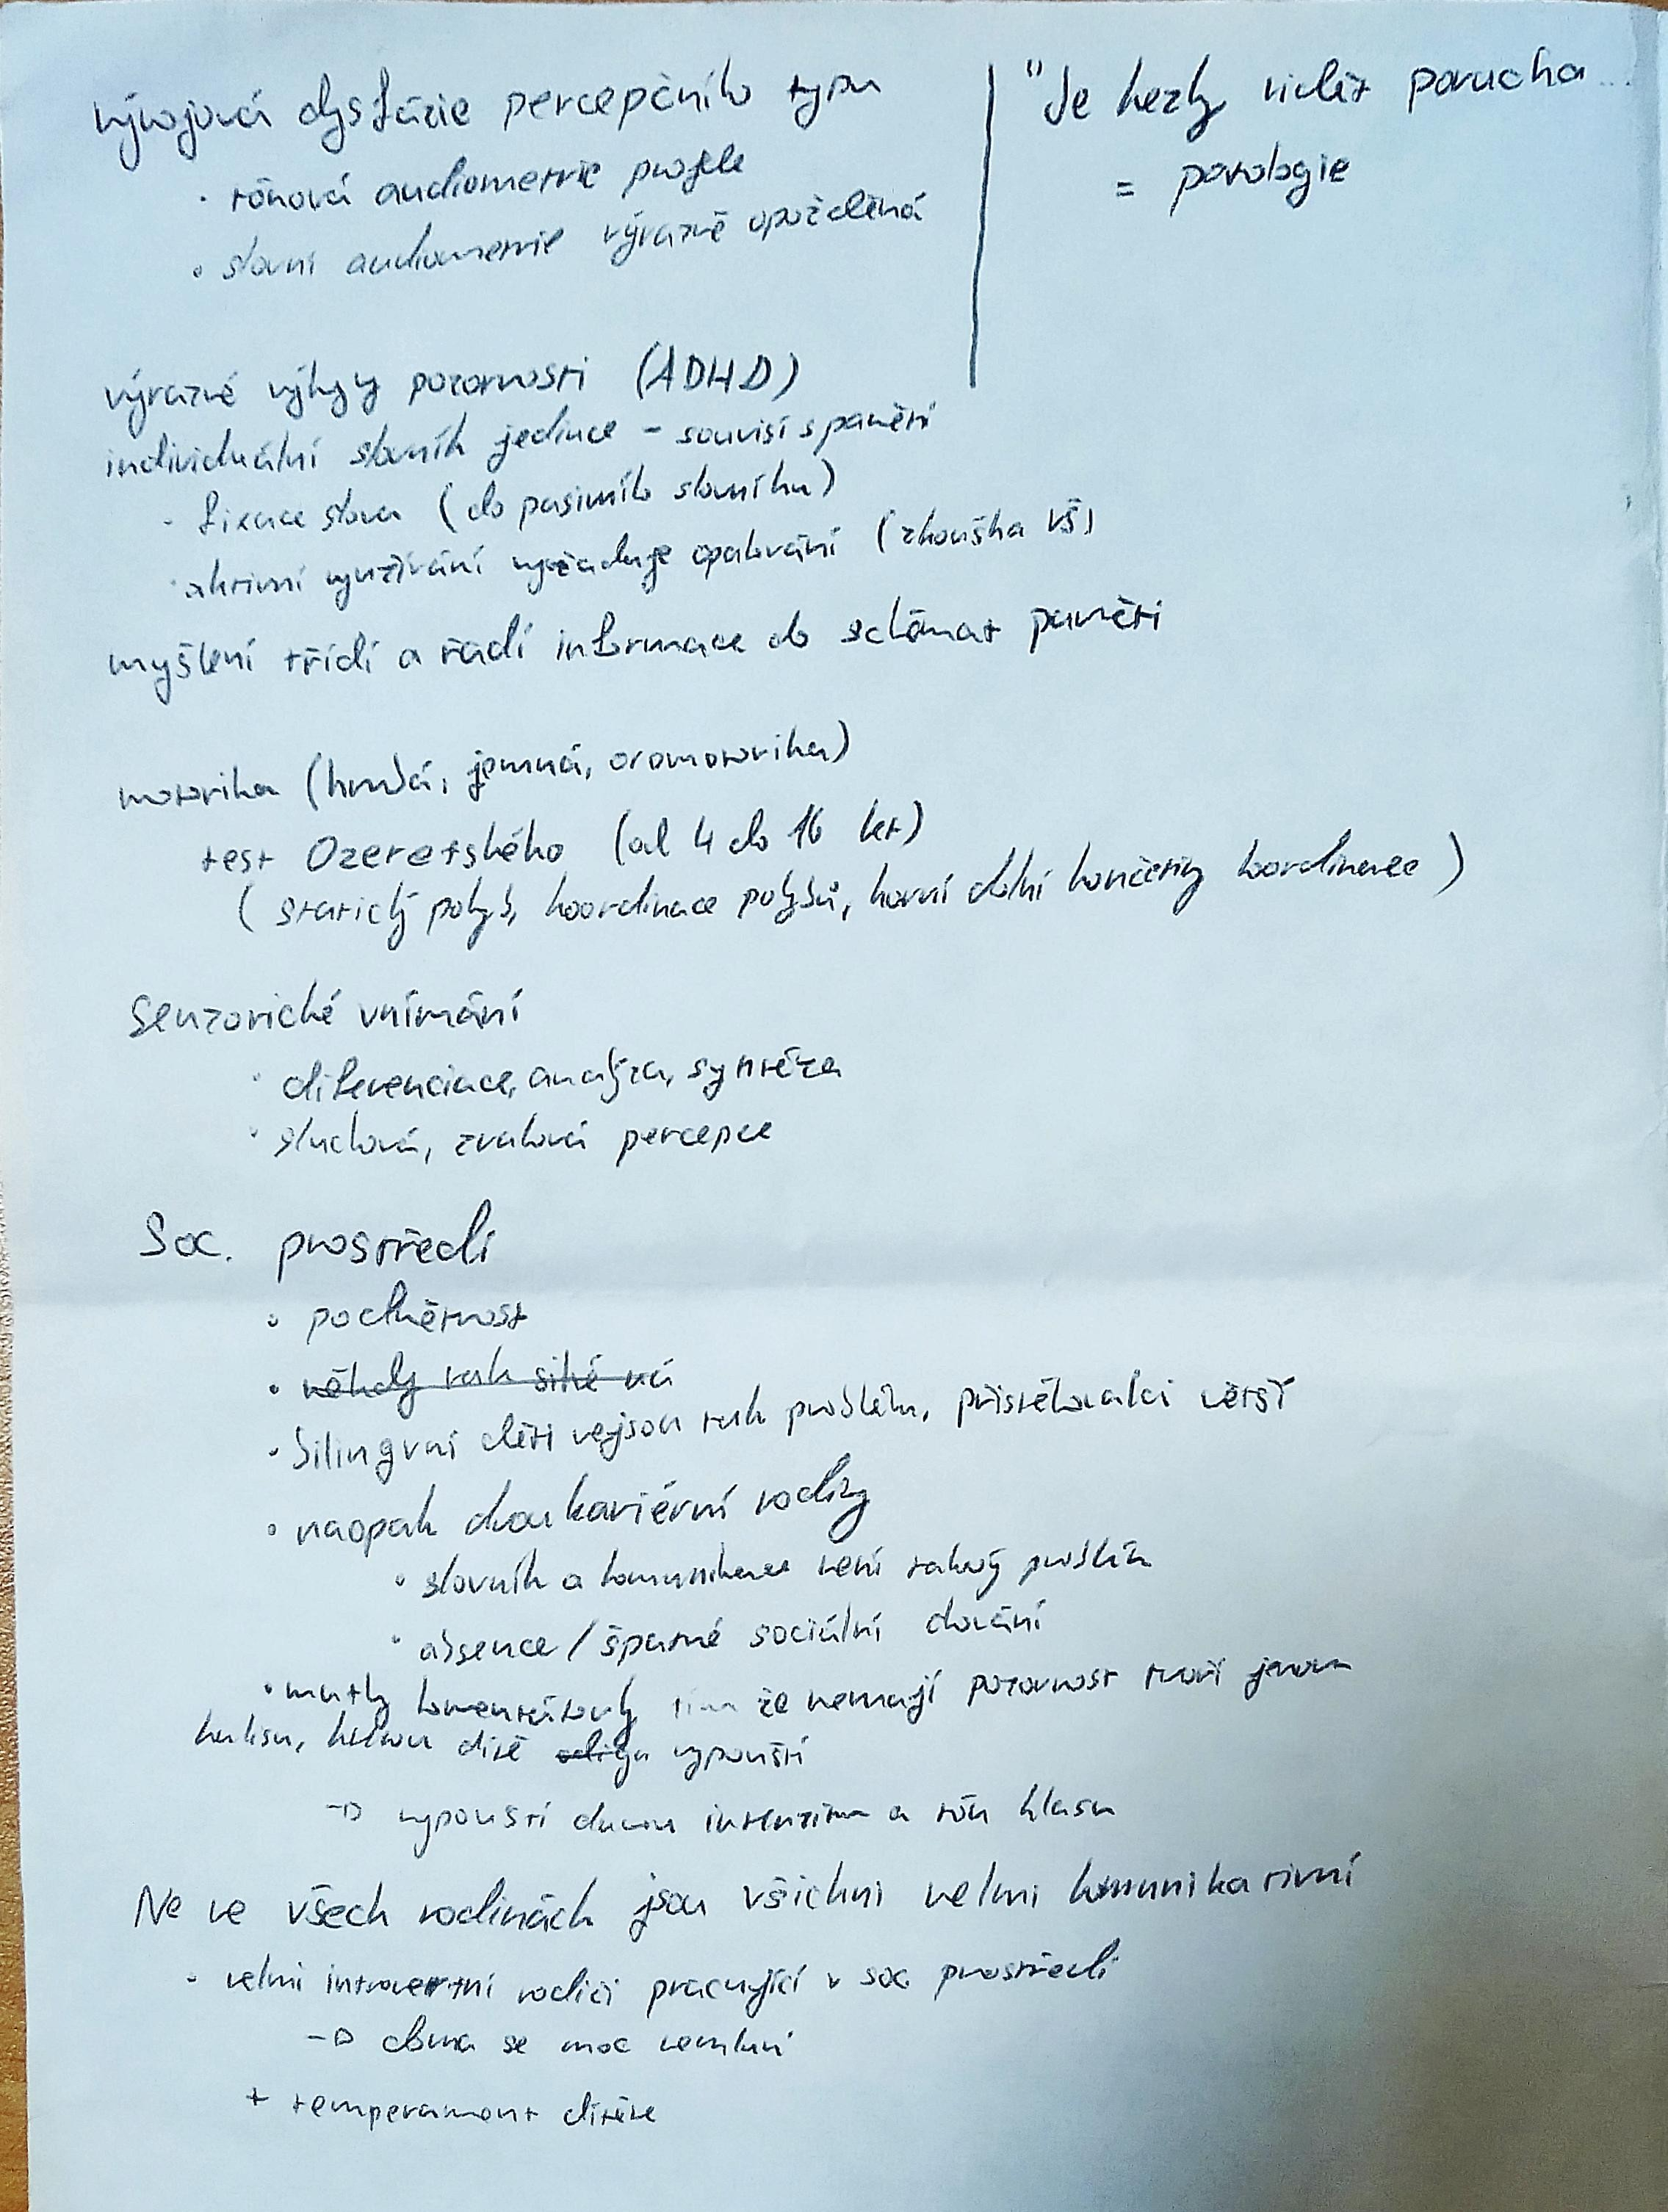 vývojová dysfázie percepčního typu
• tónová audiometrie projde
• slovní audiometrie výrazně opožděná
"Je hezky vidět porucha...
= patologie
výrazné výkyvy pozornosti (ADHD)
individuální slovník jedince - souvisí s pamětí
• fixace slova (do pasivního slovníku)
• aktivní využívání vyžaduje opakování (zkouška VŠ)
myšlení třídí a řadí informace do schémat paměti
motorika (hrubá, jemná, oromotorika)
test Ozeretského (od 4 do 16 let)
(statický pohyb, koordinace pohybů, horní dolní končetiny koordinace)
Senzorické vnímání
• diferenciace, analýza, syntéza
• sluchová, zraková percepce
Soc. prostředí
• podnětnost
• někdy tak silné ná
• bilingvní děti nejsou tak problém, přistěhovalci větší
• naopak dvoukariérní rodiny
• slovník a komunikace není takový problém
• absence / špatné sociální chování
• matky komentátorky tím že nemají pozornost tvoří jenom
kulisu, kterou dítě vypouští
→ vypouští danou intenzitu a tón hlasu
Ne ve všech rodinách jsou všichni velmi komunikativní
• velmi introvertní rodiči pracující v soc prostředí
→ doma se moc nemluví
+ temperament dítěte